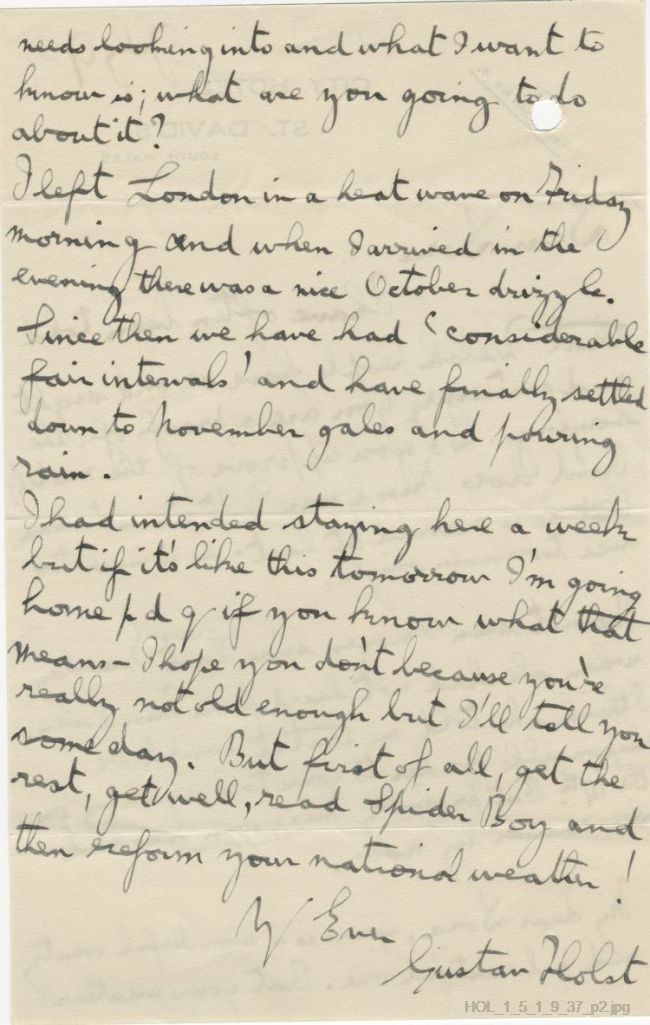 needs looking into and what I want to
know is; what are you going to do
about it?
I left London in a heat wave on Friday
morning and when I arrived in the
evening there was a nice October drizzle.
Since then we have had 'considerable
fair intervals' and have finally settled
down to November gales and pouring
rain.
I had intended staying here a week
but if it's like this tomorrow I'm going
home p d q if you know what that
means - I hope you don't because you're
really not old enough but I'll tell you
some day. But first of all, get the
rest, get well, read Spider Boy and
then reform your national weather!
Y Ever
Gustav Holst
HOL_1_5_1_9_37_p2.jpg